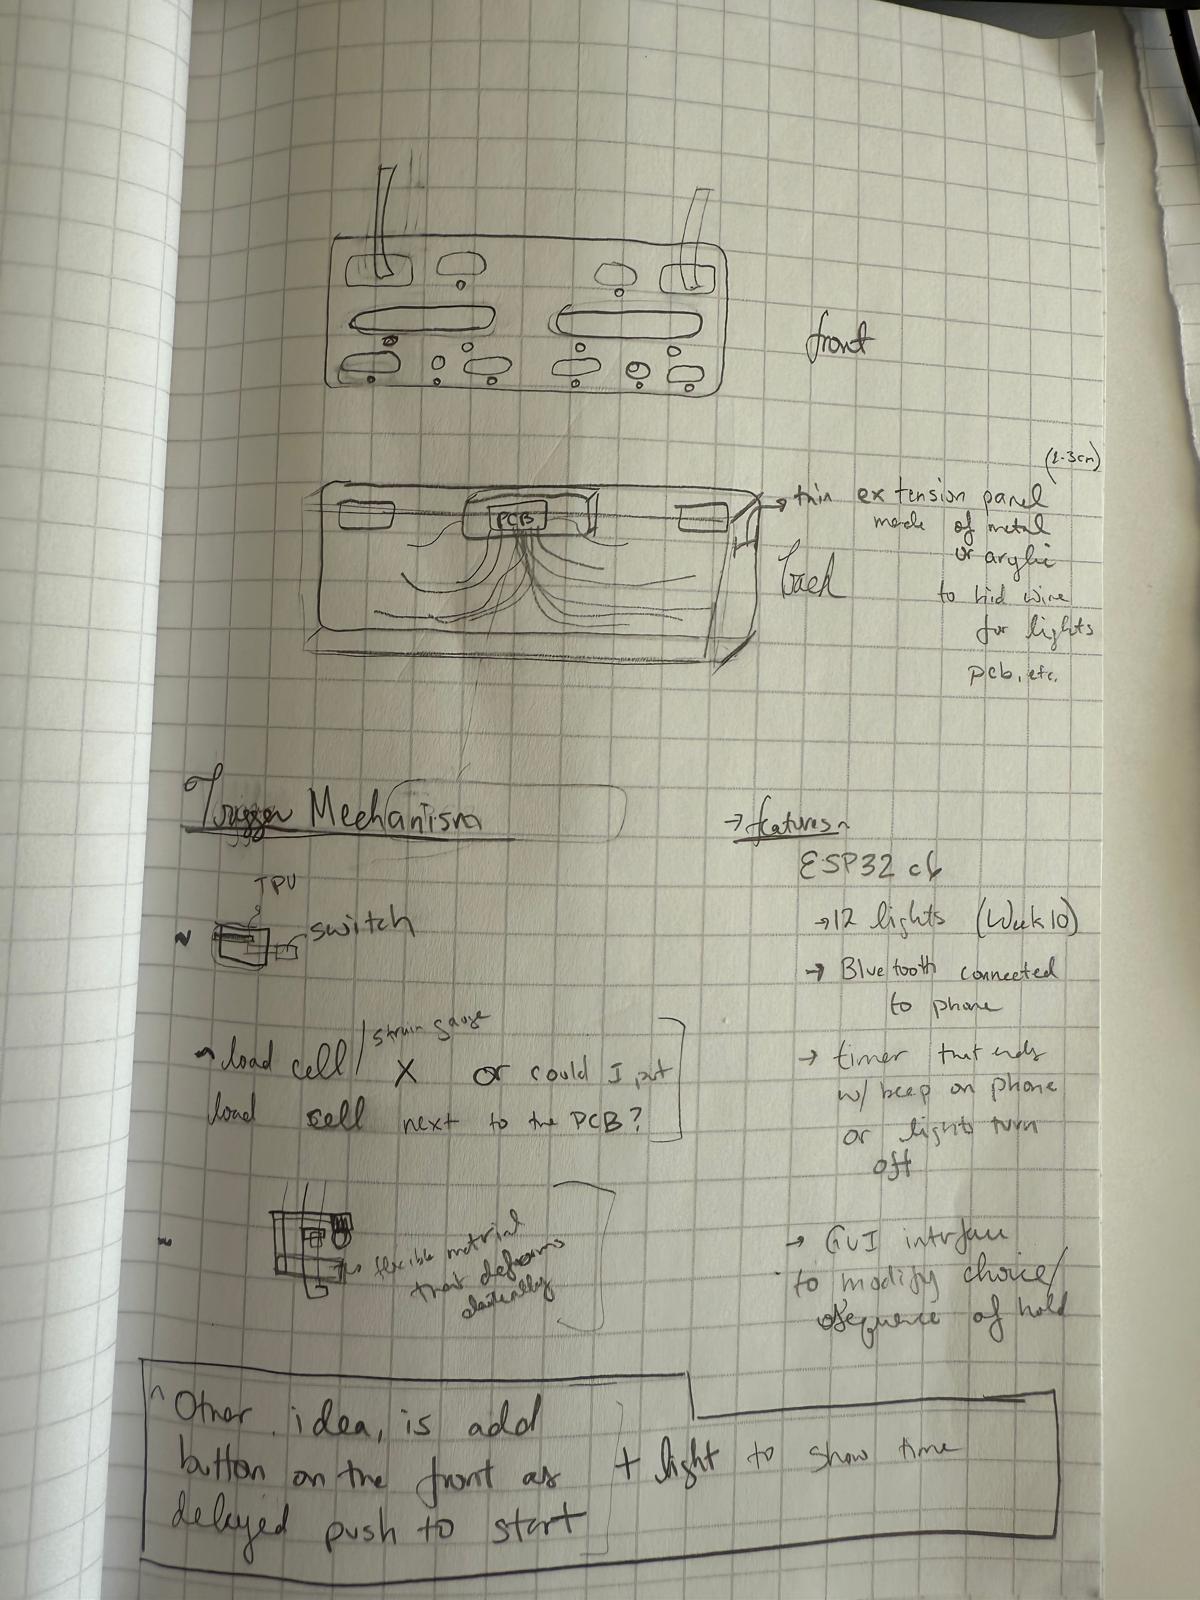 front
PCB
(2-3cm)
→ thin extension panel
made of metal
or arylic
to hid wire
for lights
pcb, etc.
back
Trigger Mechanism
TPU
~ switch
~ load cell / strain gauge X or could I put
load cell next to the PCB?
~ flexible material
that deforms
elastically
→ features~
ESP32 c6
→ 12 lights (Week 10)
→ Bluetooth connected
to phone
→ timer that ends
w/ beep on phone
or lights turn
off
→ GUI interface
to modify choice/
sequence of hold
^ Other idea, is add
button on the front as
delayed push to start
+ light to show time